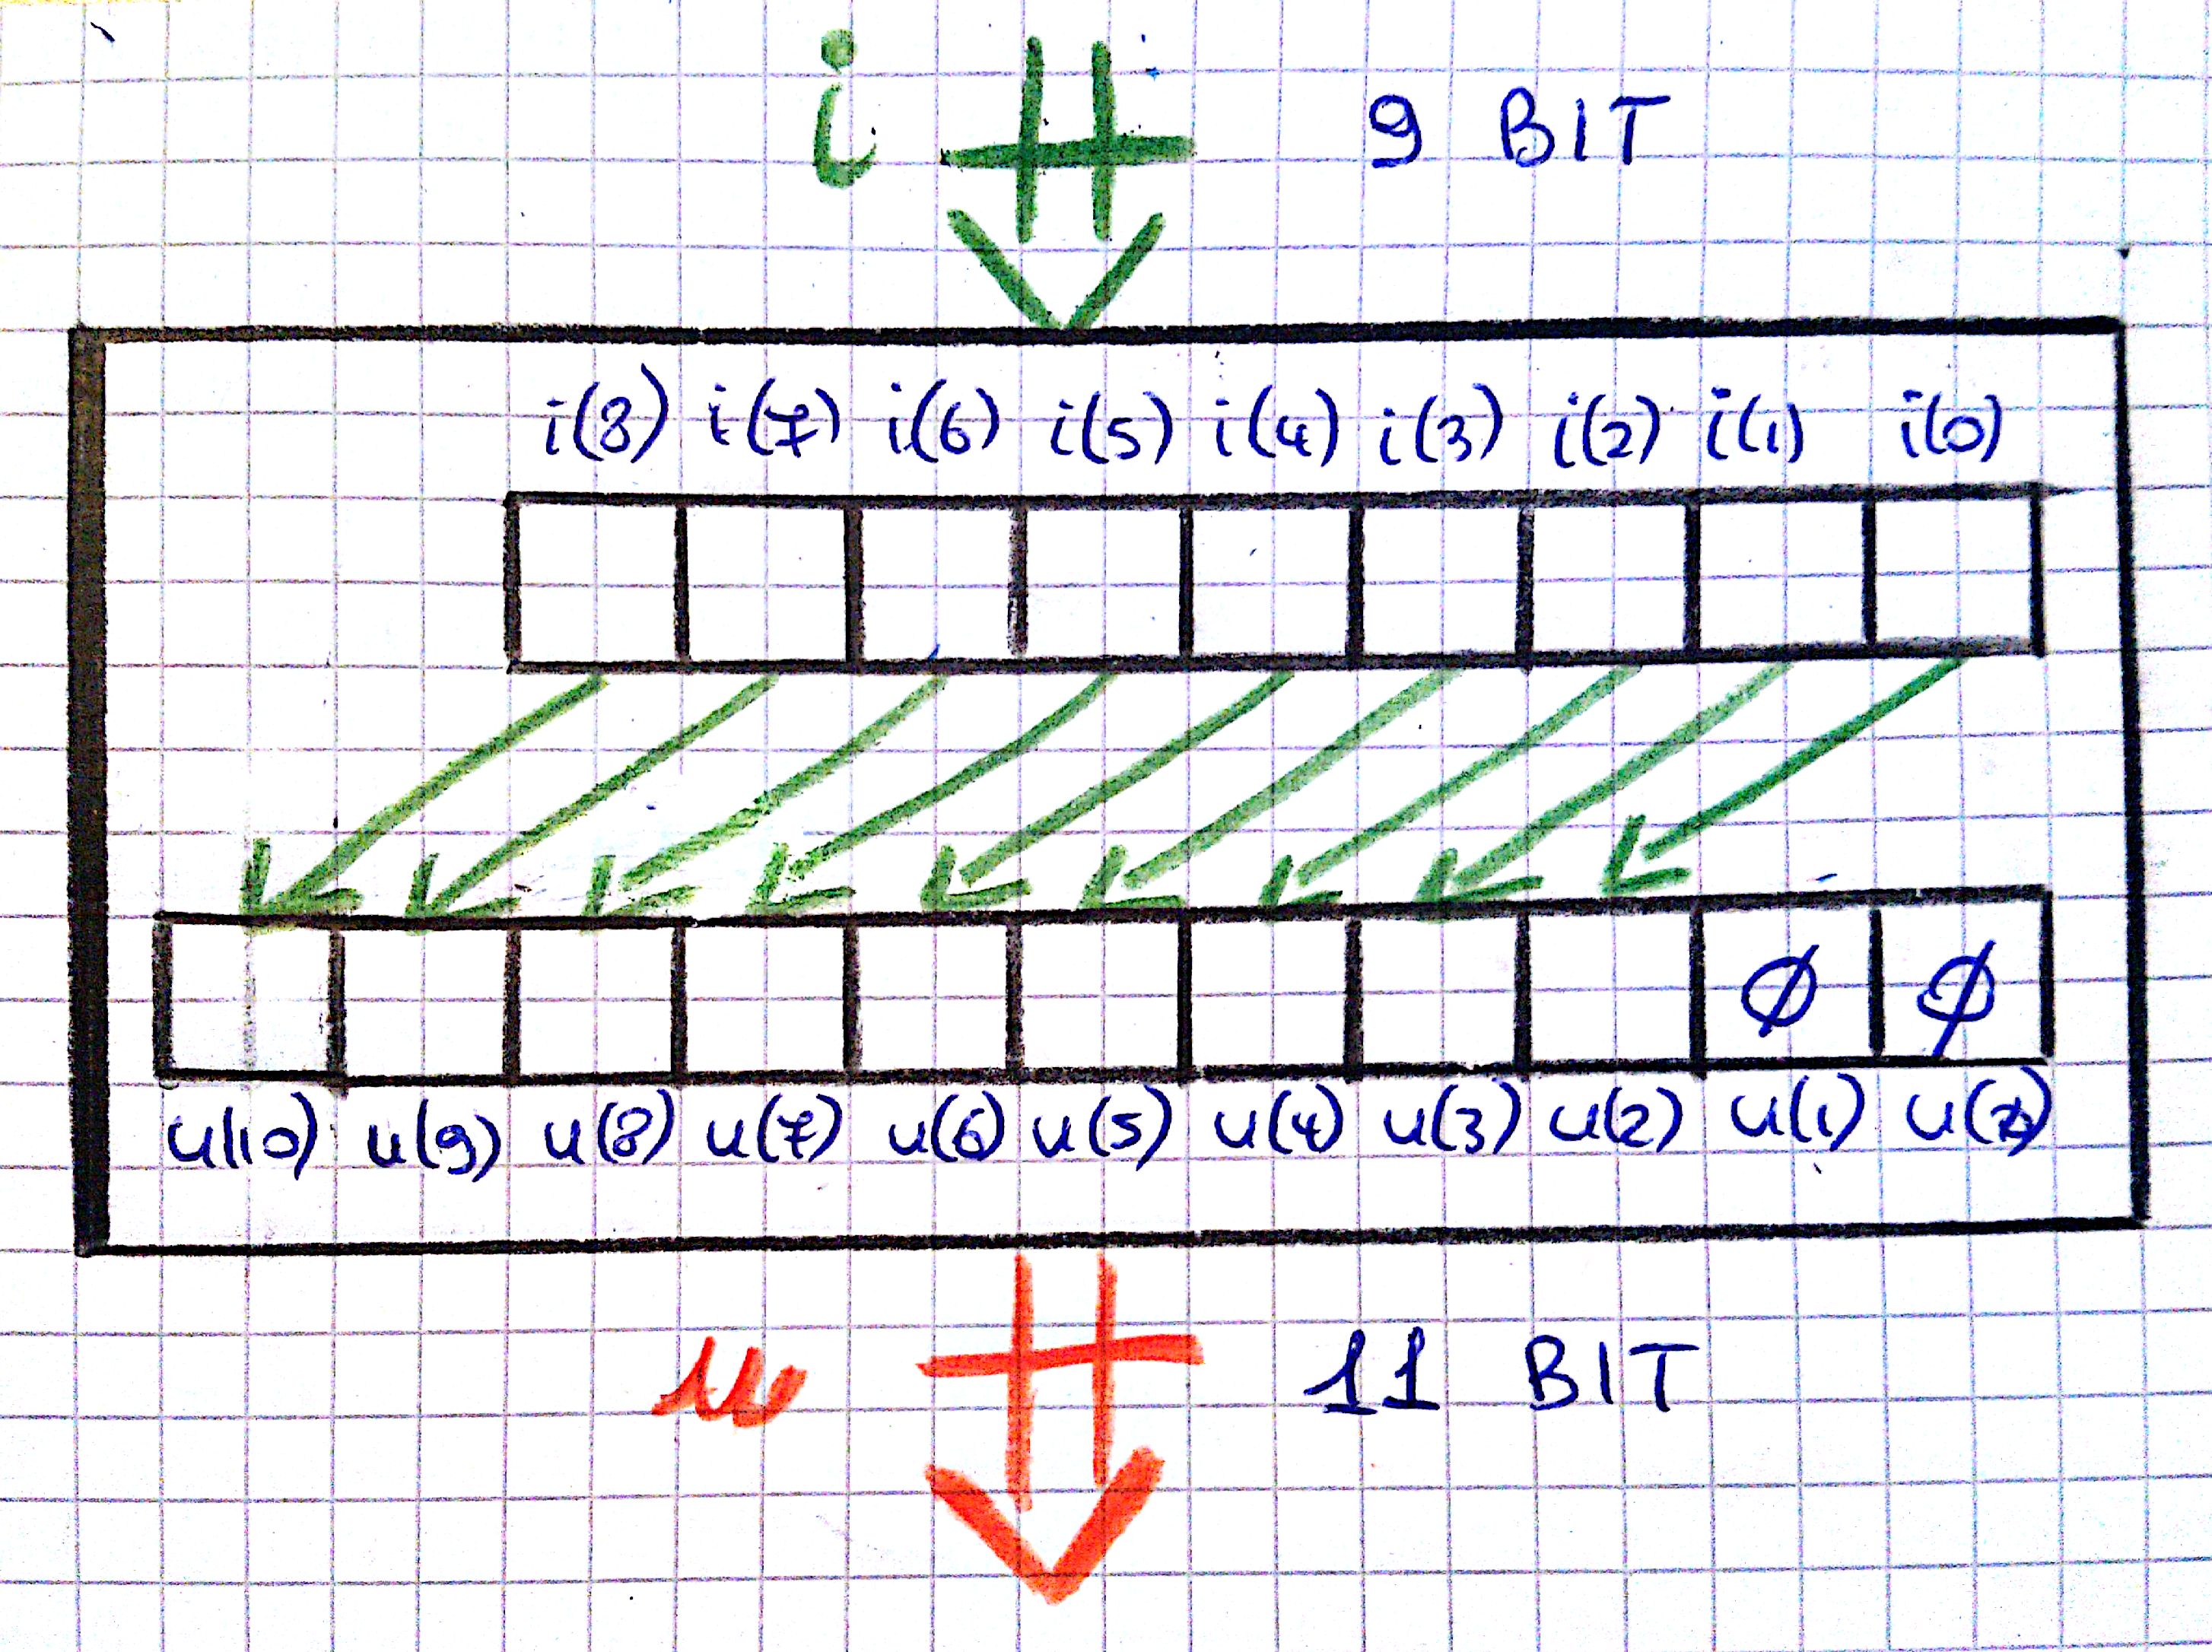 i 9 BIT
i(8) i(7) i(6) i(5) i(4) i(3) i(2) i(1) i(0)
Ø Ø
u(10) u(9) u(8) u(7) u(6) u(5) u(4) u(3) u(2) u(1)
u 11 BIT